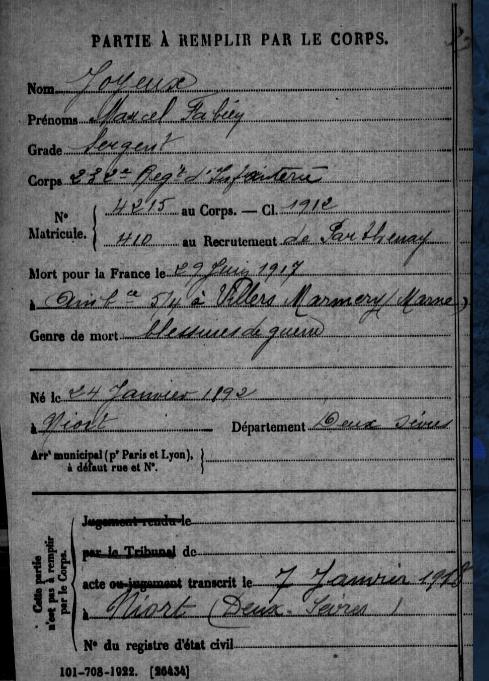 PARTIE À REMPLIR PAR LE CORPS.
Nom Joyeux
Prénoms Marcel Fabien
Grade Sergent
Corps 232e Regt d'Infanterie
No Matricule. { 4215 au Corps. — Cl. 1912
410 au Recrutement de Parthenay
Mort pour la France le 29 Juin 1917
à Ambce 5/4 à Villers Marmery (Marne)
Genre de mort blessures de guerre
Né le 24 Janvier 1892
à Niort Département Deux Sèvres
Arrt municipal (pr Paris et Lyon),
à défaut rue et No.
Cette partie
n'est pas à remplir
par le Corps.
Jugement rendu le
par le Tribunal de
acte ou jugement transcrit le 7 Janvier 1918
à Niort (Deux-Sèvres)
No du registre d'état civil
101-708-1922. [26434]